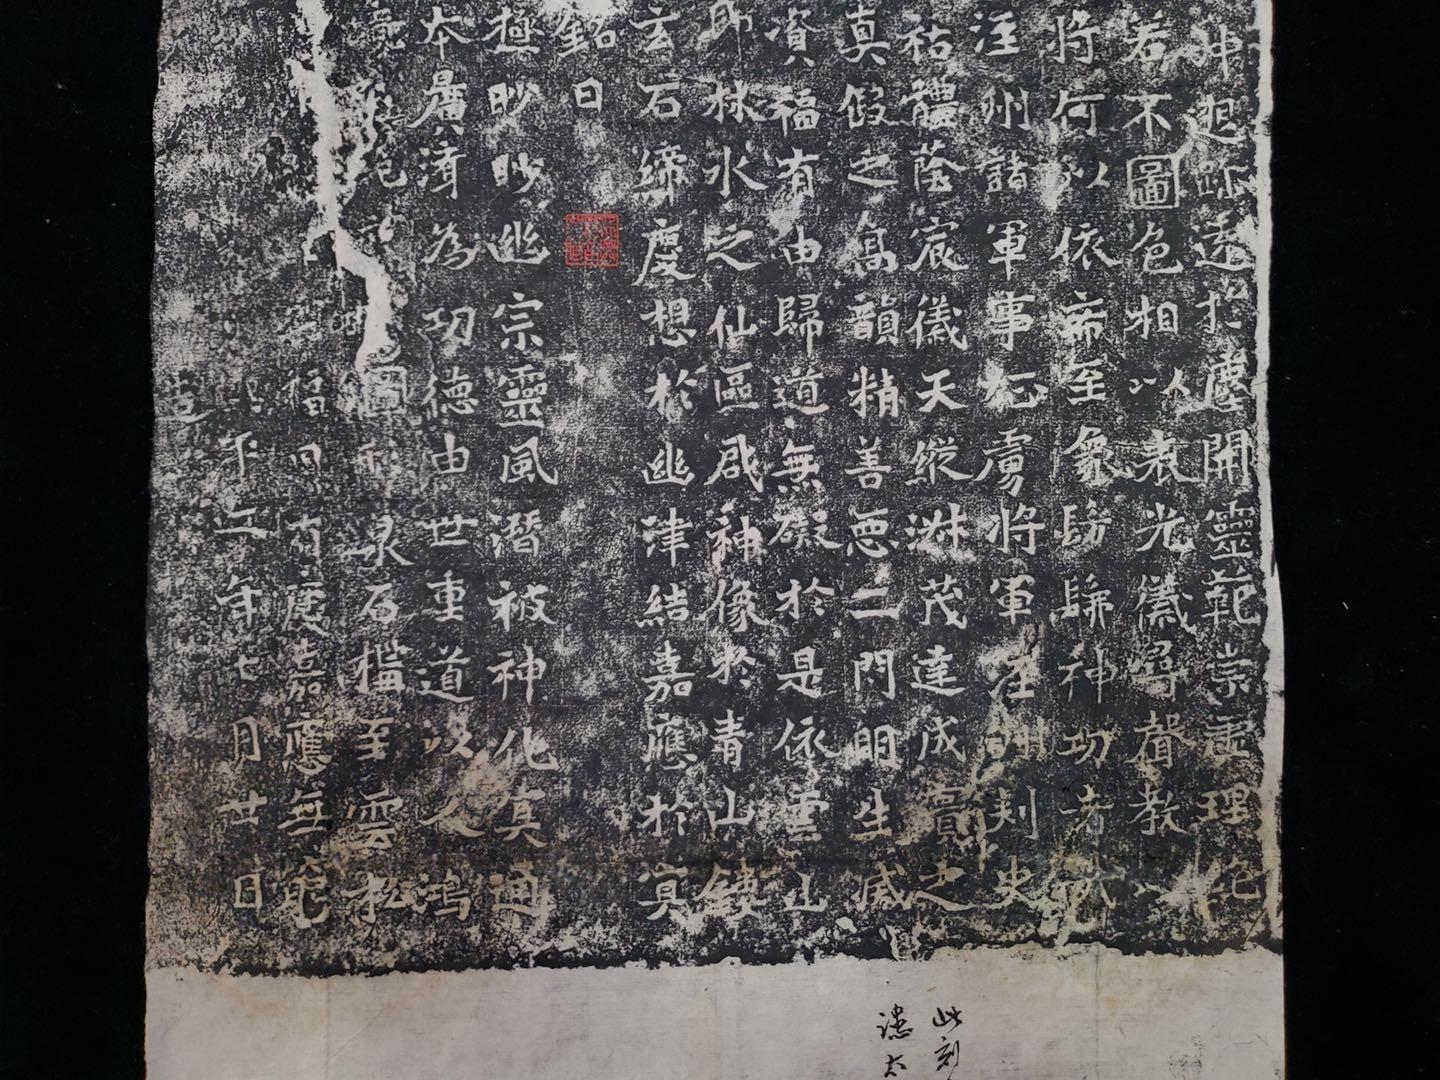 神迥跡遠於塵開靈範崇虛理絕
若不圖色相以表光儀尋聲教以
將何以依希至象髣髴神功者哉
涇州諸軍事征虜將軍涇州刺史
祐體蔭宸儀天縱淋茂達成賓之
真假之高韻精善惡二門明生滅
資福有由歸道無礙於是依雲山
即林水之仙區啟神像於青山鐫
玄石締度想於幽津結嘉應於冥
銘曰
極眇眇幽宗靈風潛被神化冥通
本廣濟為功德由世重道以人鴻
圖 泉石檻至雲松
福田有慶嘉應無窮
平二年七月廿日
造
此刻